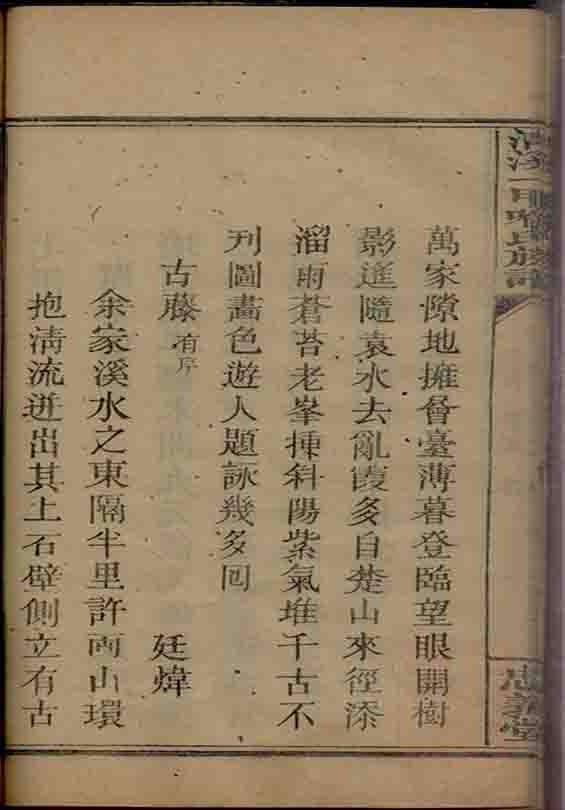 氏族譜
萬家隙地擁會臺薄暮登臨望眼開樹
影遙隨袁水去亂霞多自楚山來徑添
溜雨蒼苔老峯揷斜陽紫氣堆千古不
刋圖畫色遊人題詠幾多囘
古藤有序 廷煒
余家溪水之東隔半里許両山環
抱淸流迸出其上石壁側立有古